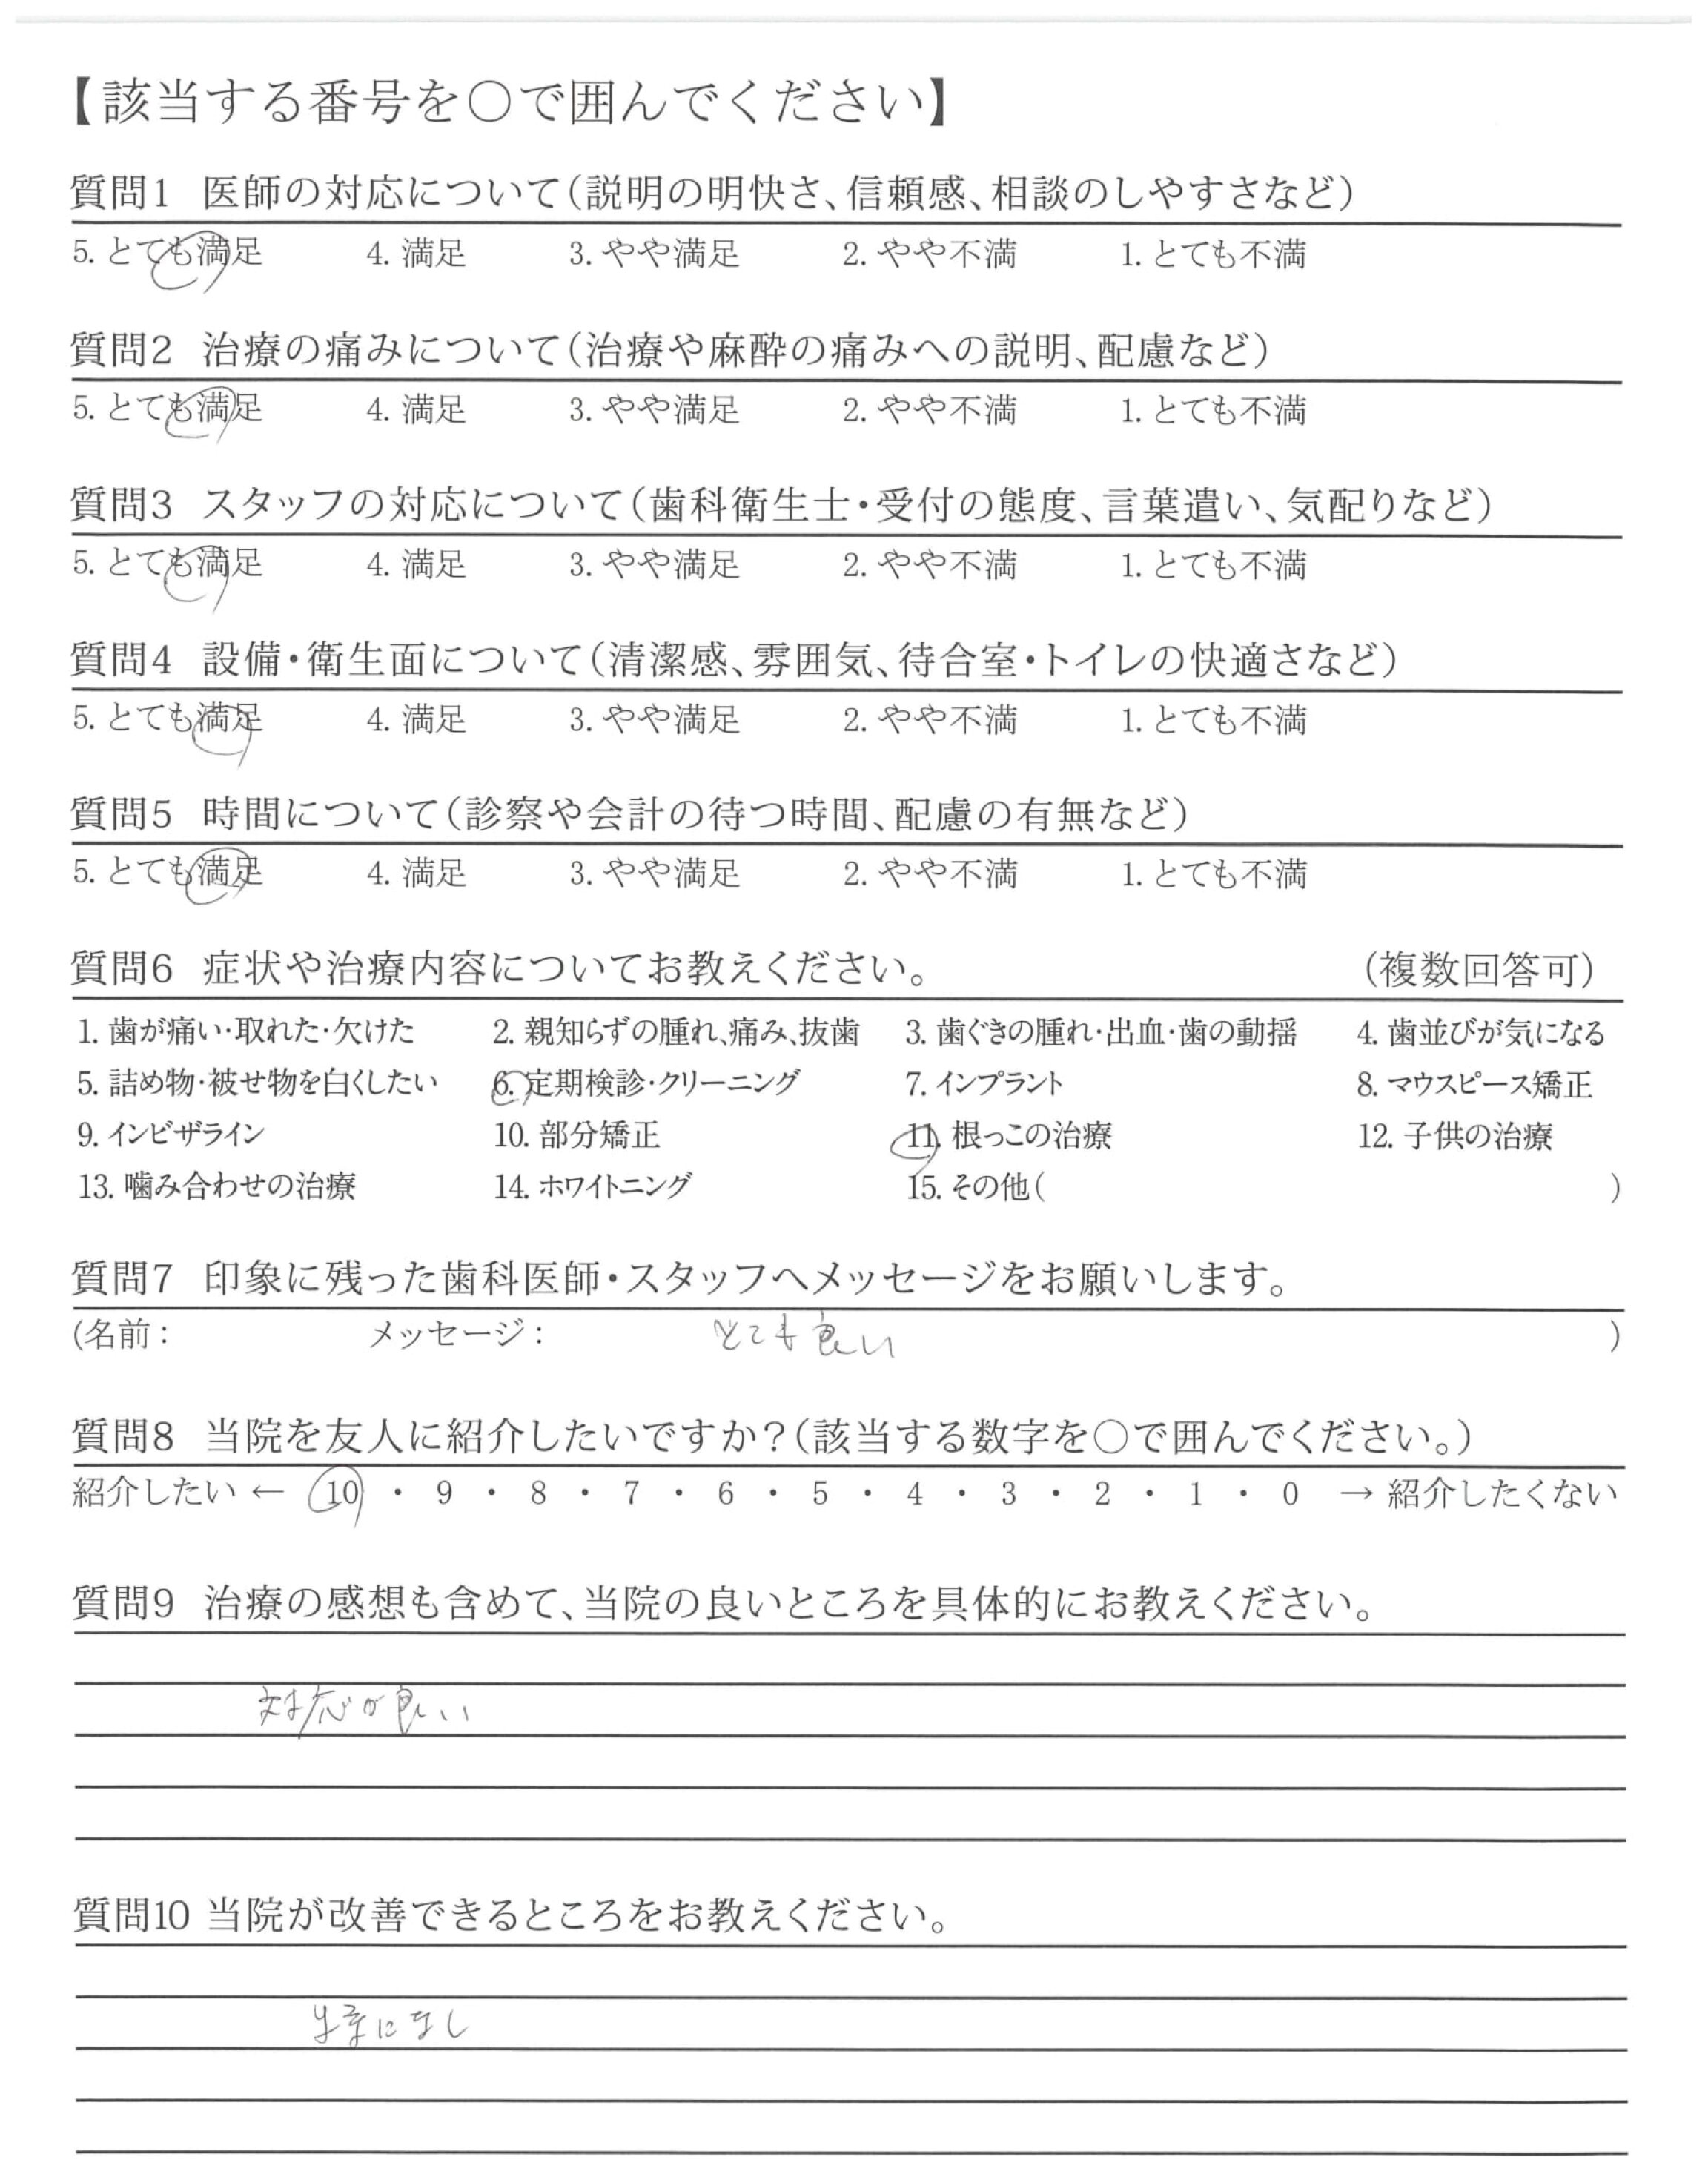 【該当する番号を○で囲んでください】
質問1 医師の対応について(説明の明快さ、信頼感、相談のしやすさなど)
5. とても満足 4. 満足 3. やや満足 2. やや不満 1. とても不満
質問2 治療の痛みについて(治療や麻酔の痛みへの説明、配慮など)
5. とても満足 4. 満足 3. やや満足 2. やや不満 1. とても不満
質問3 スタッフの対応について(歯科衛生士・受付の態度、言葉遣い、気配りなど)
5. とても満足 4. 満足 3. やや満足 2. やや不満 1. とても不満
質問4 設備・衛生面について(清潔感、雰囲気、待合室・トイレの快適さなど)
5. とても満足 4. 満足 3. やや満足 2. やや不満 1. とても不満
質問5 時間について(診察や会計の待つ時間、配慮の有無など)
5. とても満足 4. 満足 3. やや満足 2. やや不満 1. とても不満
質問6 症状や治療内容についてお教えください。 (複数回答可)
1. 歯が痛い・取れた・欠けた 2. 親知らずの腫れ、痛み、抜歯 3. 歯ぐきの腫れ・出血・歯の動揺 4. 歯並びが気になる
5. 詰め物・被せ物を白くしたい 6. 定期検診・クリーニング 7. インプラント 8. マウスピース矯正
9. インビザライン 10. 部分矯正 11. 根っこの治療 12. 子供の治療
13. 噛み合わせの治療 14. ホワイトニング 15. その他( )
質問7 印象に残った歯科医師・スタッフへメッセージをお願いします。
(名前: メッセージ: とても良い )
質問8 当院を友人に紹介したいですか?(該当する数字を○で囲んでください。)
紹介したい ← 10 ・ 9 ・ 8 ・ 7 ・ 6 ・ 5 ・ 4 ・ 3 ・ 2 ・ 1 ・ 0 → 紹介したくない
質問9 治療の感想も含めて、当院の良いところを具体的にお教えください。
対応が良い
質問10 当院が改善できるところをお教えください。
特になし